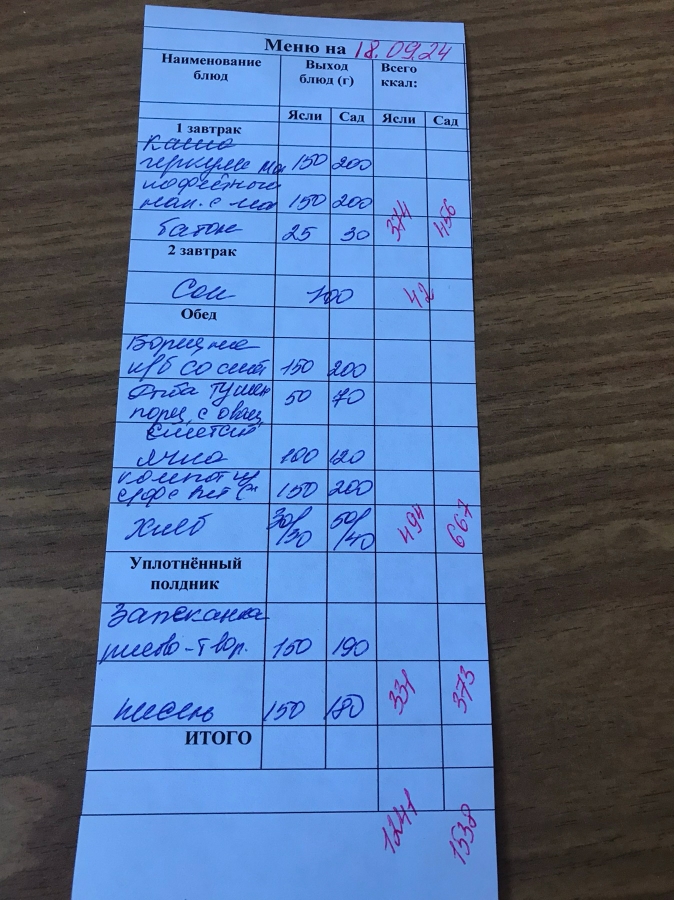 Меню на 18.09.24
Наименование блюд Выход блюд (г) Всего ккал:
Ясли Сад Ясли Сад
1 завтрак
Каша
геркулес 150 200
кофейного
нап. с мол 150 200 374 456
батон 25 30
2 завтрак
Сок 100 42
Обед
Борщ на
к/б со смет 150 200
Рыба тушен 50 70
порц. с овощ
сметан
100 120
компот из
с/ф с вит С 150 200
хлеб 30/30 50/40 494 667
Уплотнённый
полдник
Запеканка
рисово-твор. 150 190
кисель 150 180 331 373
ИТОГО
1241 1538